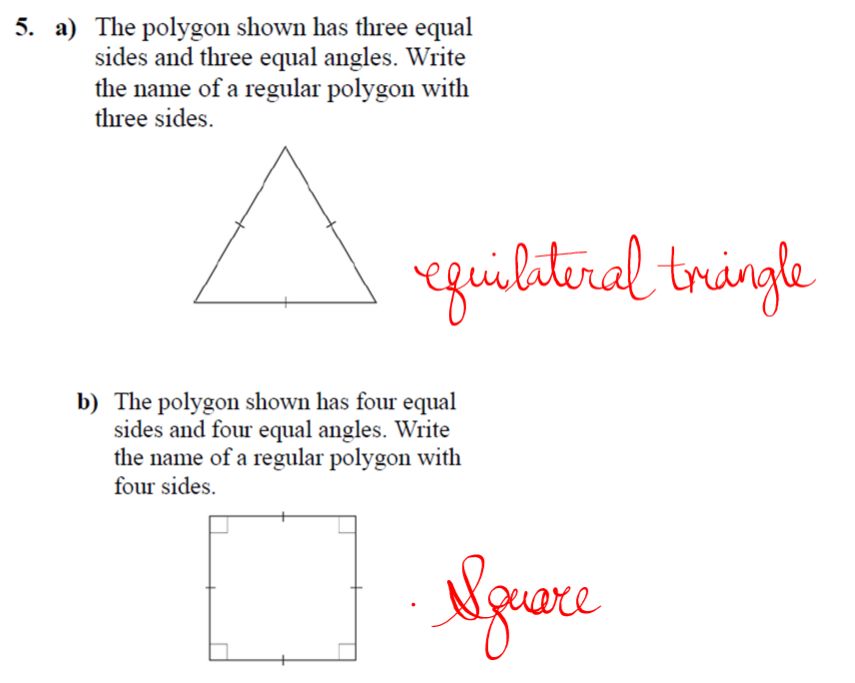 5. a) The polygon shown has three equal
sides and three equal angles. Write
the name of a regular polygon with
three sides.
equilateral triangle
b) The polygon shown has four equal
sides and four equal angles. Write
the name of a regular polygon with
four sides.
Square